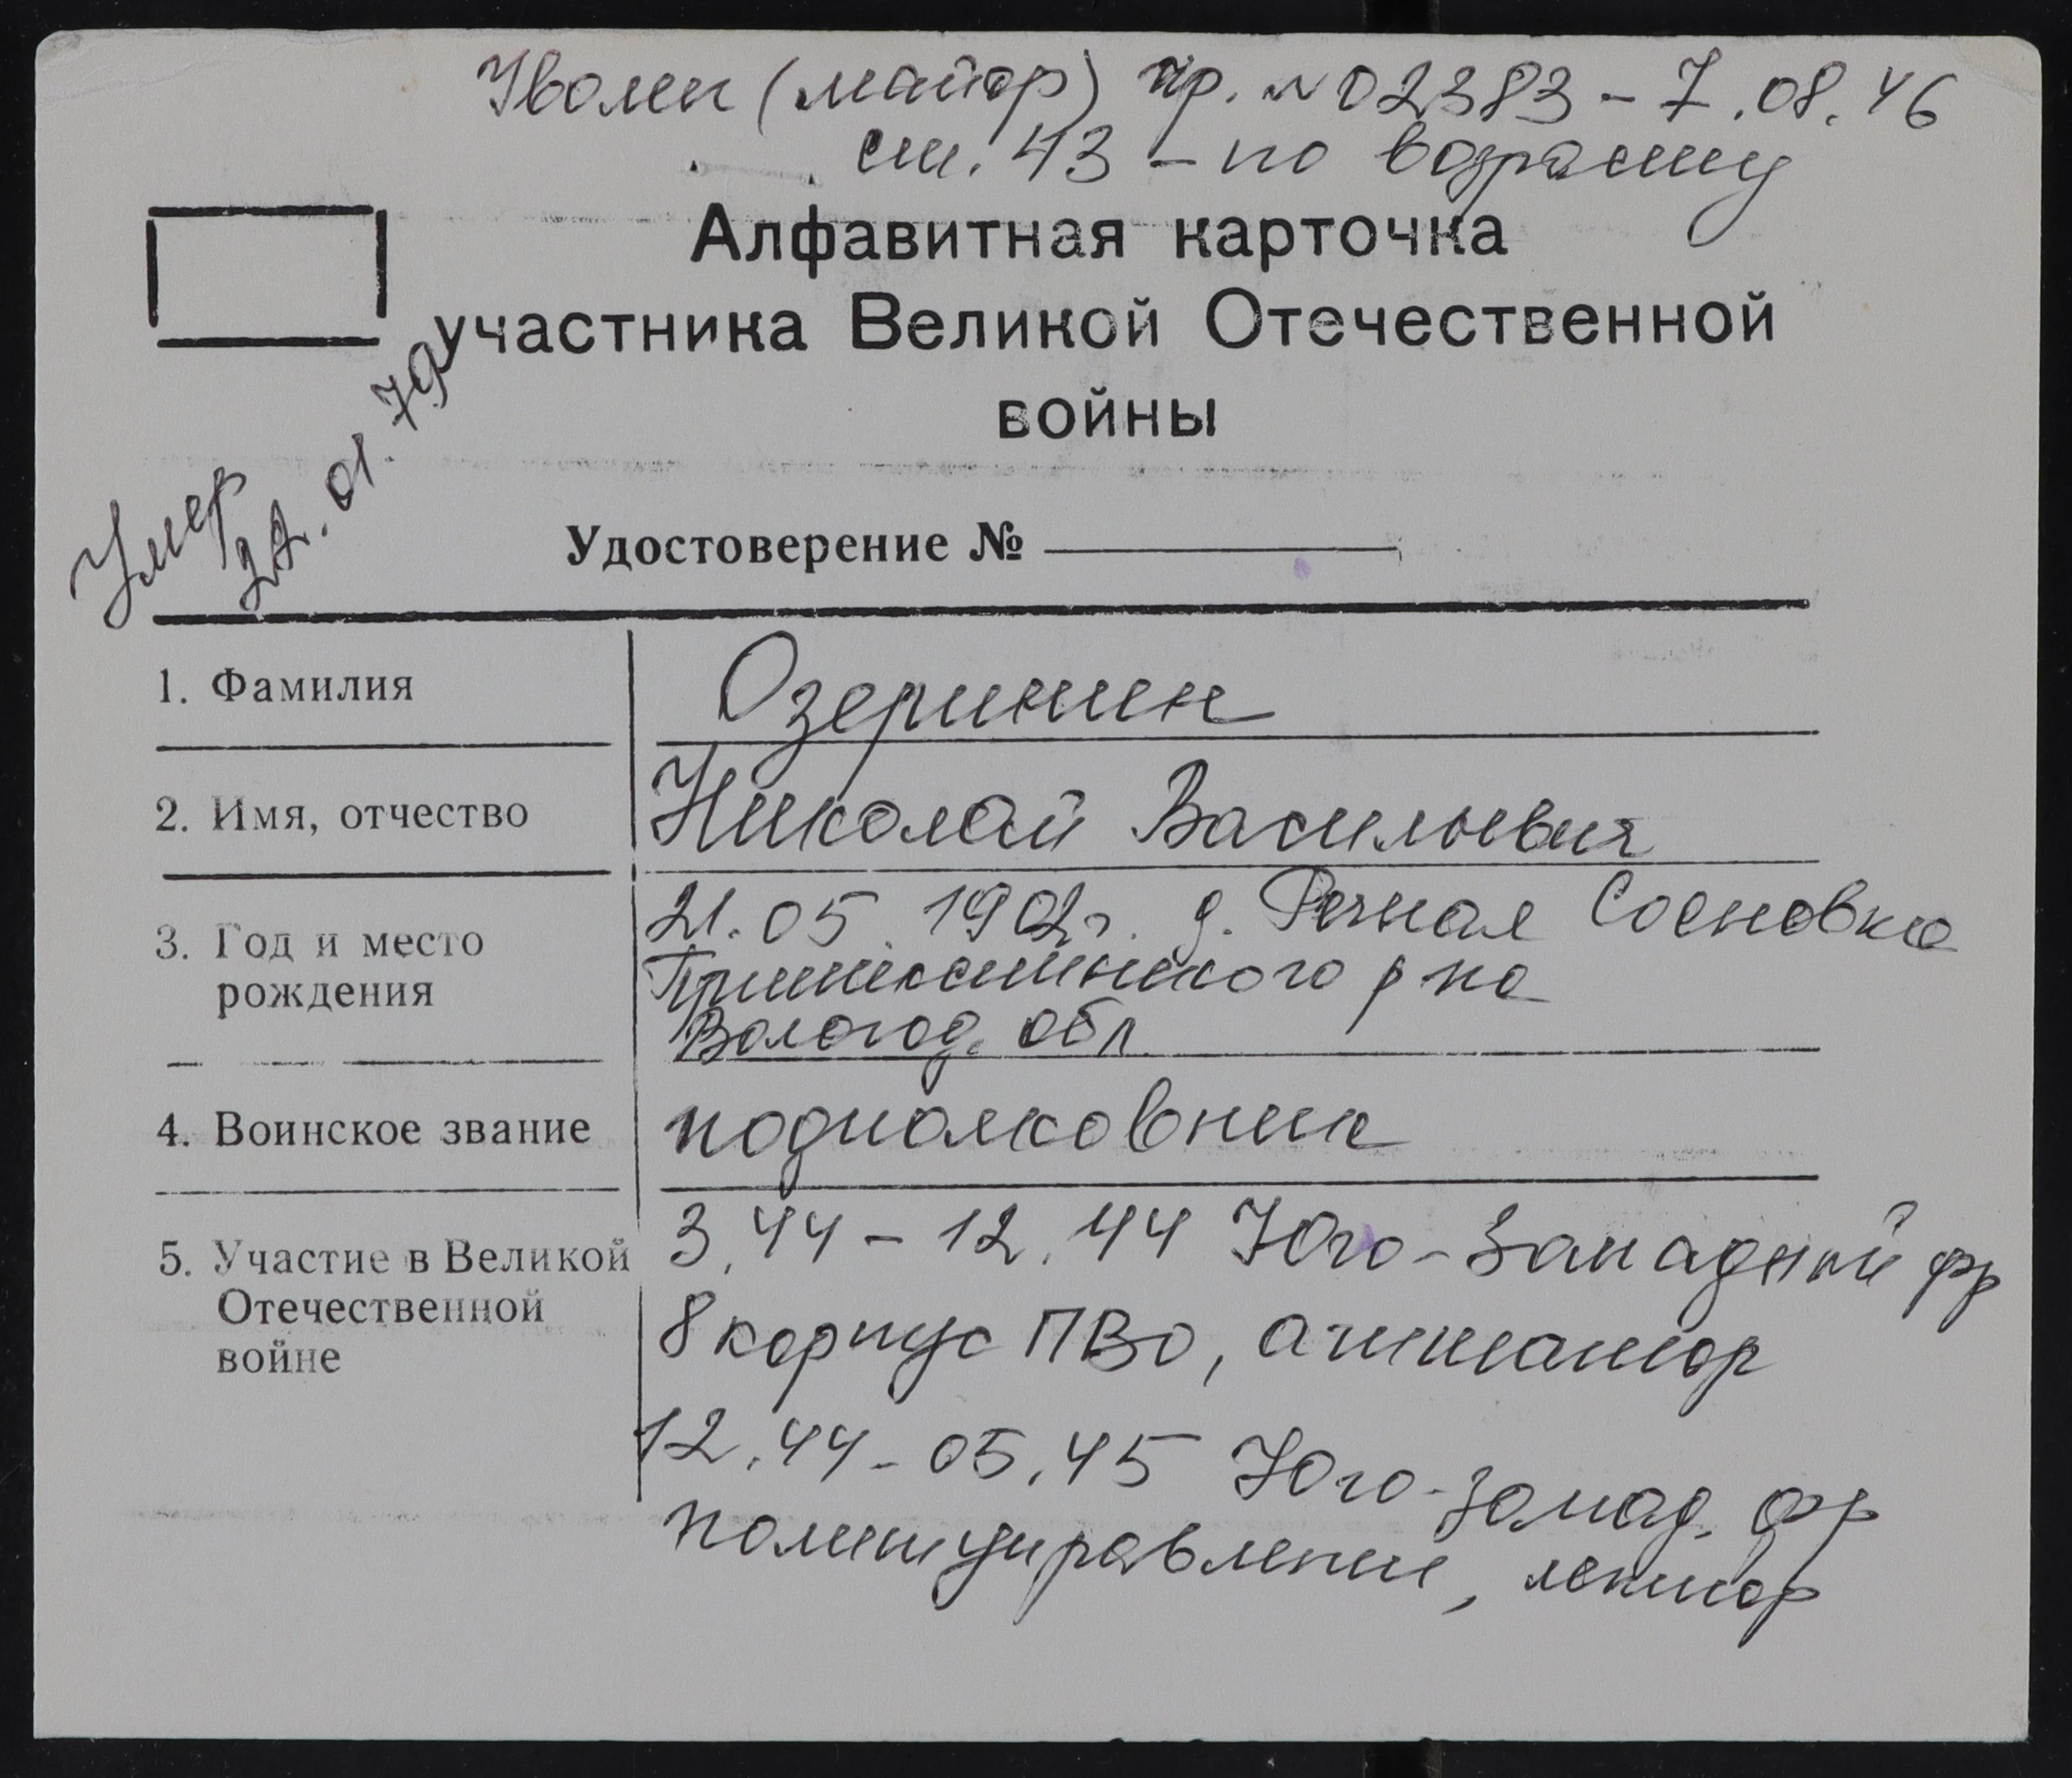 Уволен (майор) пр. №02383 - 7.08.46
ст. 43 - по возрасту
Алфавитная карточка
участника Великой Отечественной
войны
Умер
22.01.79
Удостоверение №
1. Фамилия
Озеринин
2. Имя, отчество
Николай Васильевич
3. Год и место
рождения
21.05.1902г. д. Речная Сосновка
р на
Вологод. обл
4. Воинское звание
подполковник
5. Участие в Великой
Отечественной
войне
3.44 - 12.44 Юго-Западный фр
8 корпус ПВО, агитатор
12.44 - 05.45 Юго-запад. фр
политуправление, лектор